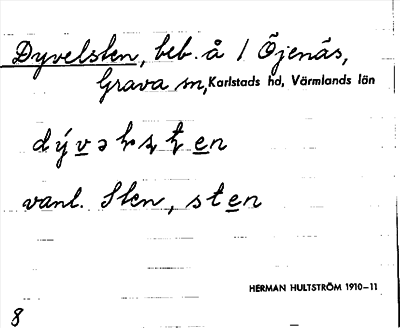 Dyvelsten, beb. å 1 Öjenäs,
Grava sn, Karlstads hd, Värmlands län
vanl. Sten, sten
HERMAN HULTSTRÖM 1910–11
8